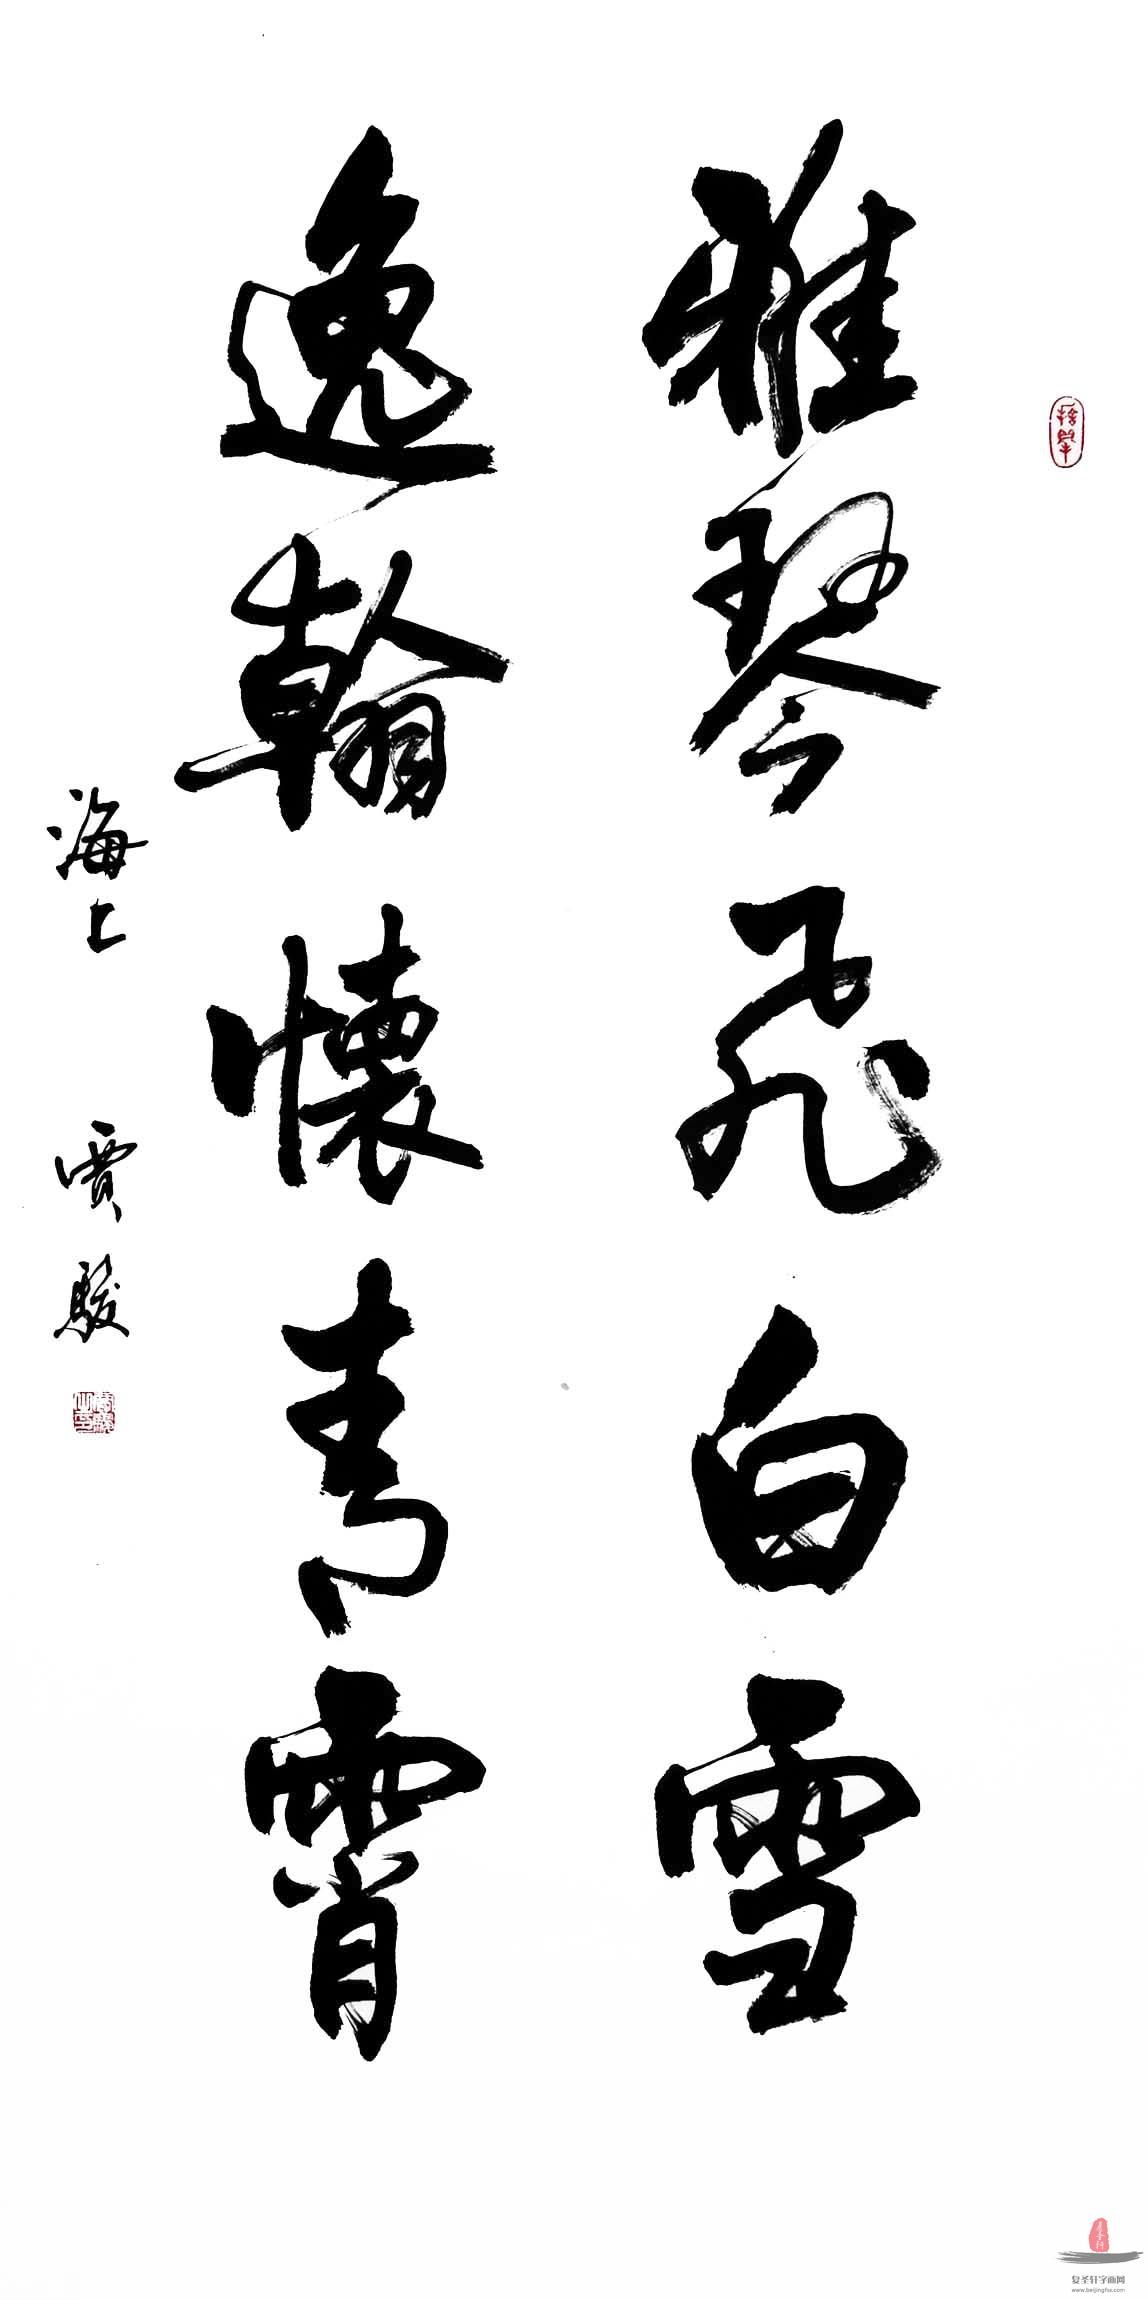 雅琴飛白雪
逸翰懷青霄
海上 賈駿
复圣轩字画网
www.beijingfsx.com